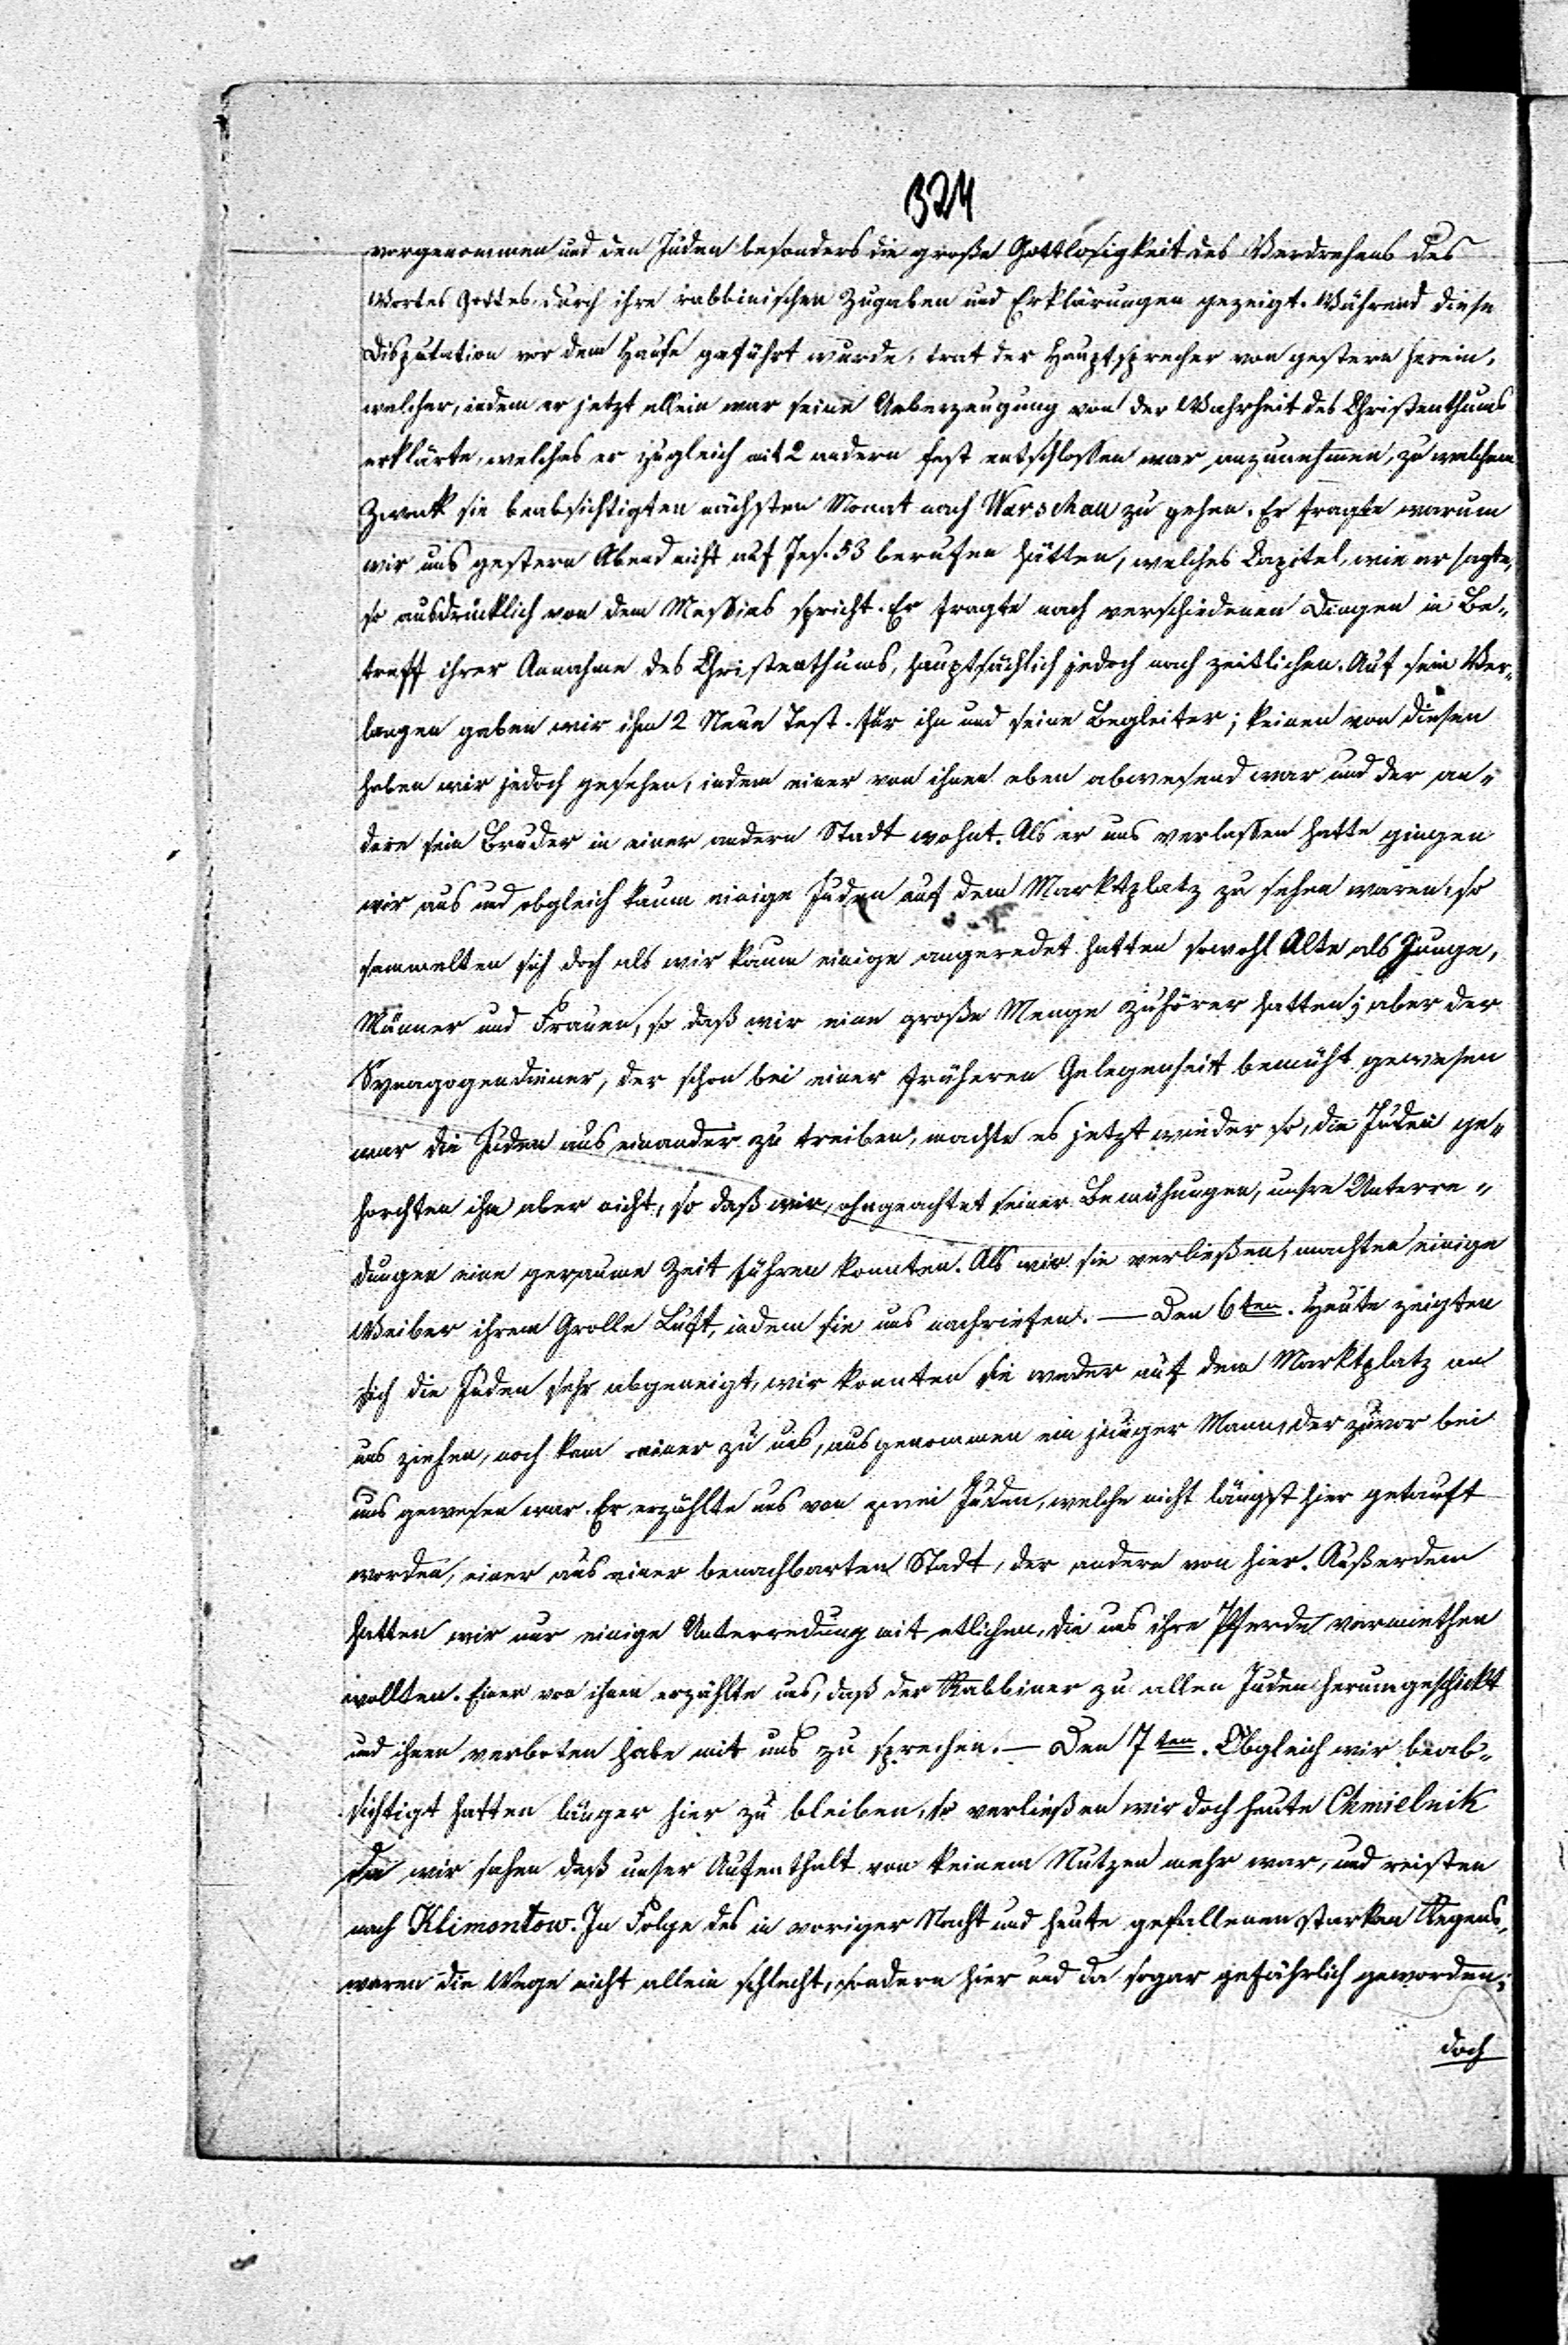 324
vorgenommen und den Juden besonders die große Gottlosigkeit des Verdrehens des
Wortes Gottes, durch ihre rabbinischen Zugaben und Erklärungen gezeigt. Während diese
Disputation vor dem Hause geführt wurde, trat der Hauptsprecher von gestern herein,
welcher, indem er jetzt allein war seine Ueberzeugung von der Wahrheit des Christenthums
erklärte, welches er zugleich mit 2 andern fest entschlossen war anzunehmen, zu welchem
Zweck sie beabsichtigten nächsten Monat nach Warschau zu gehen. Er fragte warum
wir uns gestern Abend nicht auf Jes. 53 berufen hätten, welches Capitel, wie er sagte,
so ausdrücklich von dem Messias spricht. Er fragte nach verschiedenen Dingen in Be-
treff ihrer Annahme des Christenthums, hauptsächlich jedoch nach zeitlichen. Auf sein Ver-
langen gaben wir ihm 2 Neue Test. für ihn und seine Begleiter; keinen von diesen
haben wir jedoch gesehen, indem einer von ihnen eben abwesend war und der an-
dere sein Bruder in einer andern Stadt wohnt. Als er uns verlassen hatte gingen
wir aus und obgleich kaum einige Juden auf dem Marktplatz zu sehen waren, so
sammelten sich doch als wir kaum einige angeredet hatten sowohl Alte als Junge,
Männer und Frauen, so daß wir eine große Menge Zuhörer hatten; aber der
Synagogendiener, der schon bei einer früheren Gelegenheit bemüht gewesen
war die Juden aus einander zu treiben, machte es jetzt wieder so, die Juden ge-
horchten ihm aber nicht, so daß wir, ohngeachtet seiner Bemühungen, unsre Unterre-
dungen eine geraume Zeit führen konnten. Als wir sie verließen, machten einige
Weiber ihrem Grolle Luft, indem sie uns nachriefen. — Den 6ten. Heute zeigten
sich die Juden sehr abgeneigt, wir konnten sie weder auf dem Marktplatz an
uns ziehen, noch kam einer zu uns, ausgenommen ein junger Mann, der zuvor bei
uns gewesen war. Er erzählte uns von zwei Juden, welche nicht längst hier getauft
worden, einer aus einer benachbarten Stadt, der andere von hier. Außerdem
hatten wir nur einige Unterredung mit etlichen, die uns ihre Pferde vermiethen
wollten. Einer von ihnen erzählte uns, daß der Rabbiner zu allen Juden herumgeschickt
und ihnen verboten habe mit uns zu sprechen. — Den 7ten. Obgleich wir beab-
sichtigt hatten länger hier zu bleiben, so verließen wir doch heute Chmielnik
da wir sahen daß unser Aufenthalt von keinem Nutzen mehr war, und reisten
nach Klimontow. In Folge des in voriger Nacht und heute gefallenen starken Regens,
waren die Wege nicht allein schlecht, sondern hier und da sogar gefährlich geworden;
doch